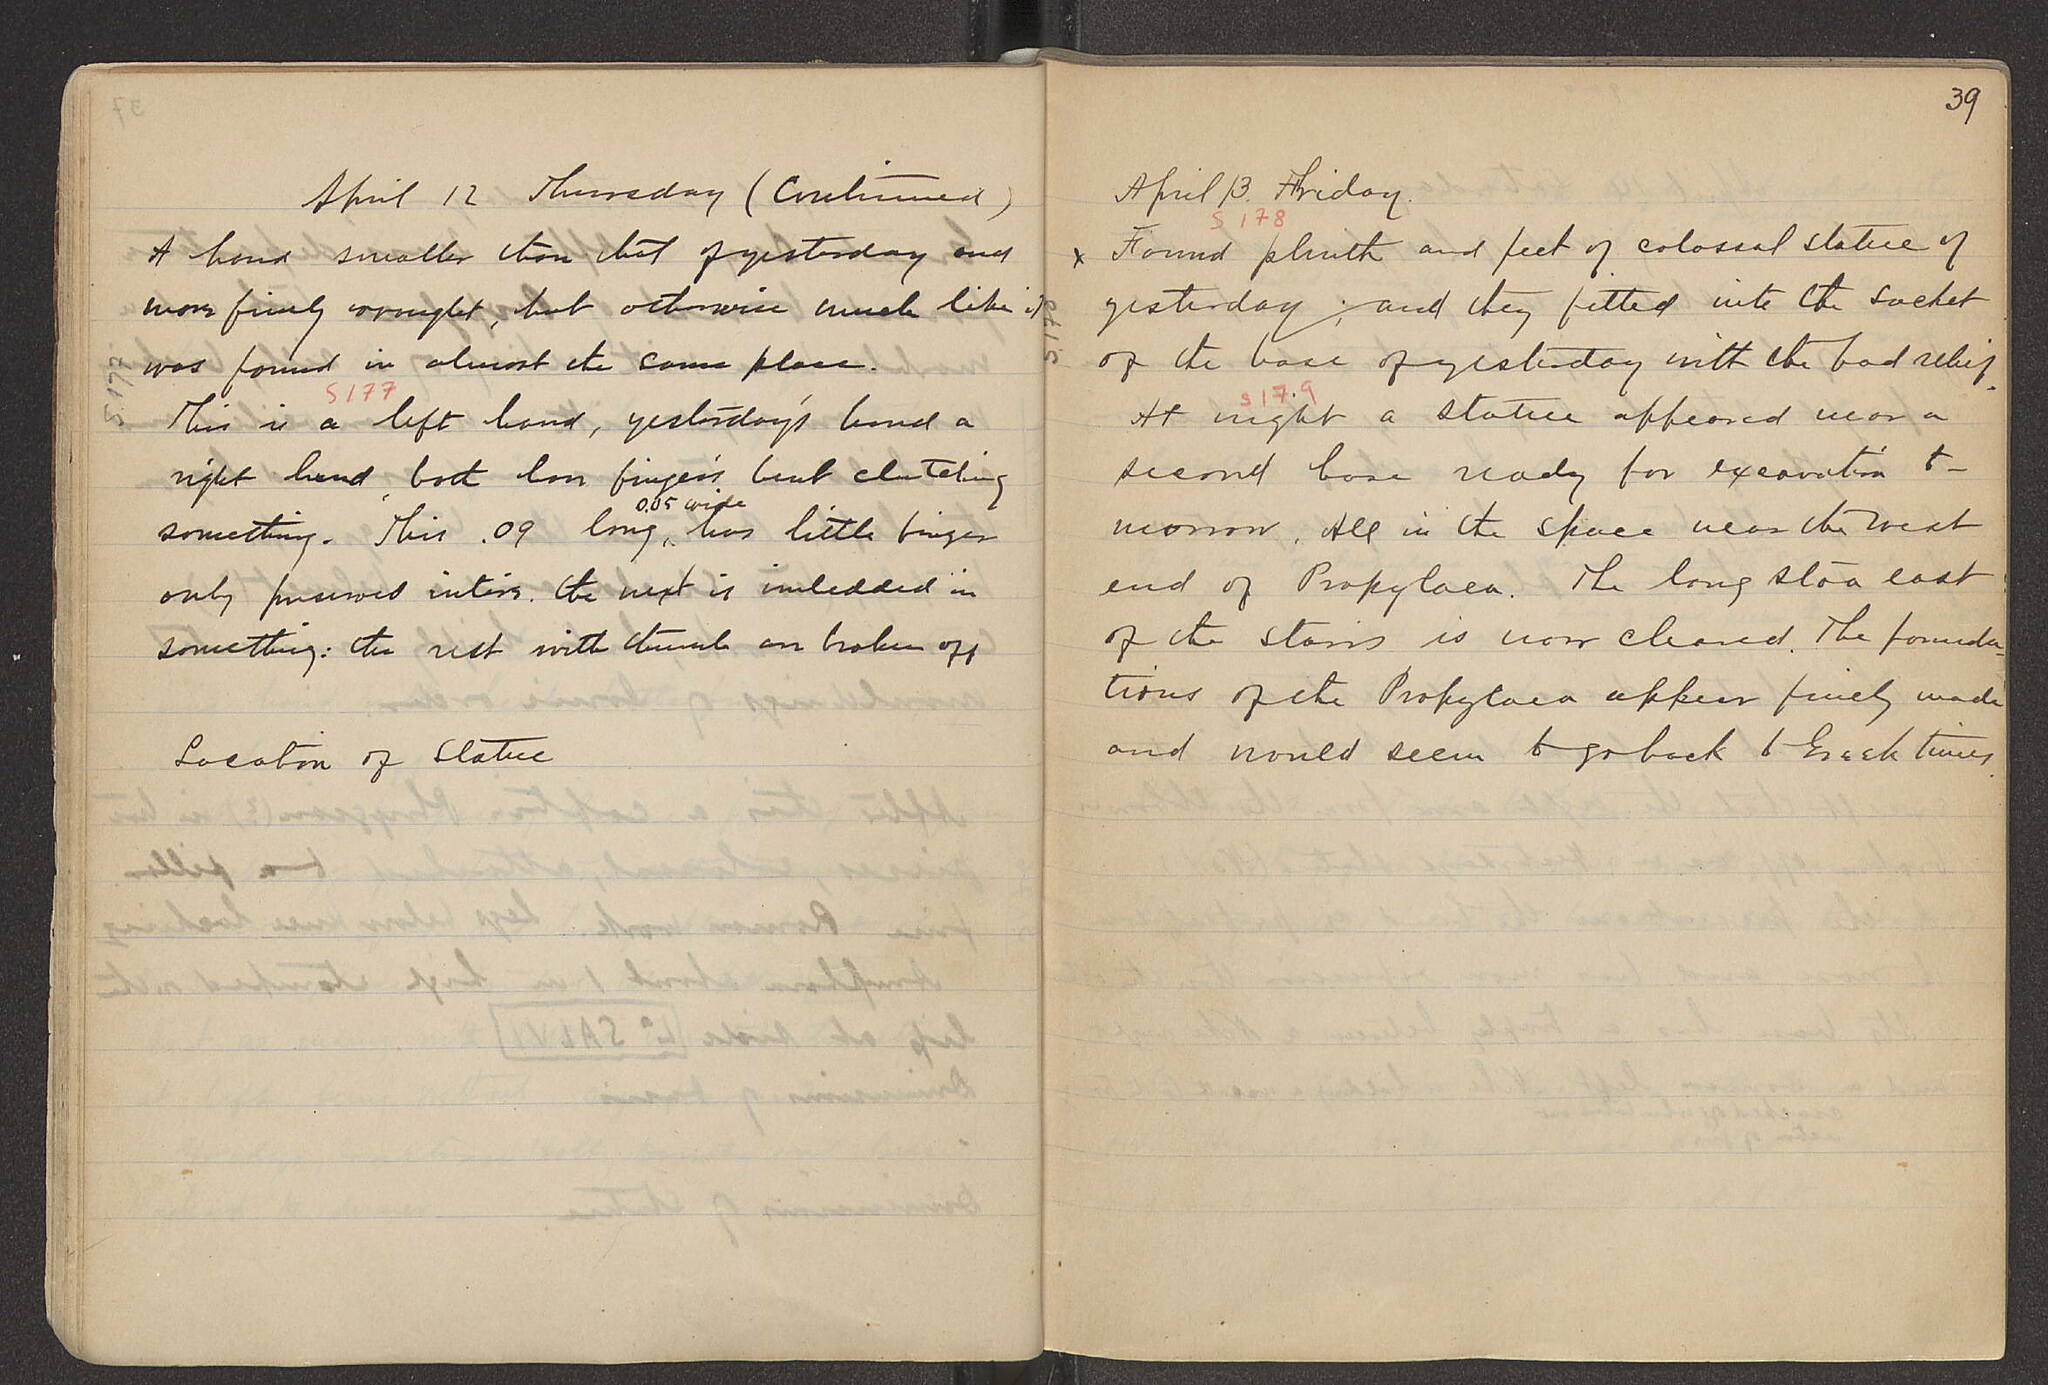 April 12 Thursday (Continued)
A hand smaller than that of yesterday and
more finely wrought, but otherwise much like it
was found in almost the same place.
S 177
S 177
This is a left hand, yesterday's hand a
right hand, both have fingers bent clutching
something. This .09 long, 0.05 wide has little finger
only preserved intire. the next is imbedded in
something: the rest with thumb are broken off
Location of Statue
39
April 13. Friday.
S 178
x Found plinth and feet of colossal statue of
yesterday; and they fitted into the socket
S 178
of the base of yesterday with the bad relief.
S 179
At night a statue appeared near a
second base ready for excavation to-
morrow. All in the space near the west
end of Propylaea. The long stoa east
of the stairs is now cleared. The founda-
tions of the Propylaea appear finely made
and would seem to go back to Greek times.